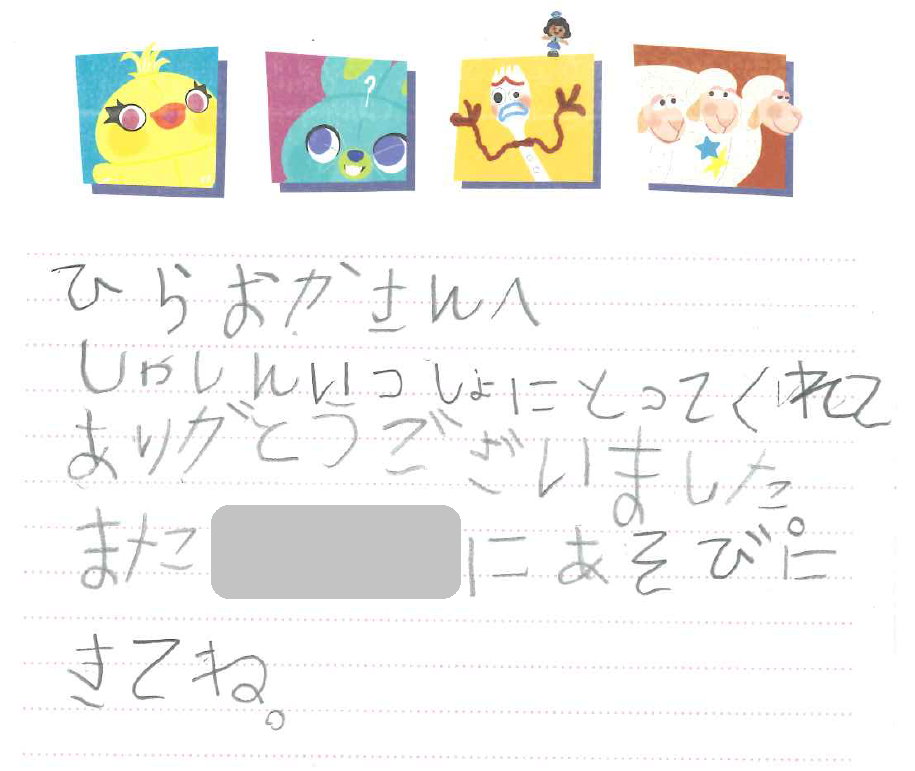 ひらおかさんへ
しゃしんいっしょにとってくれて
ありがとうございました
また
にあそびに
きてね。